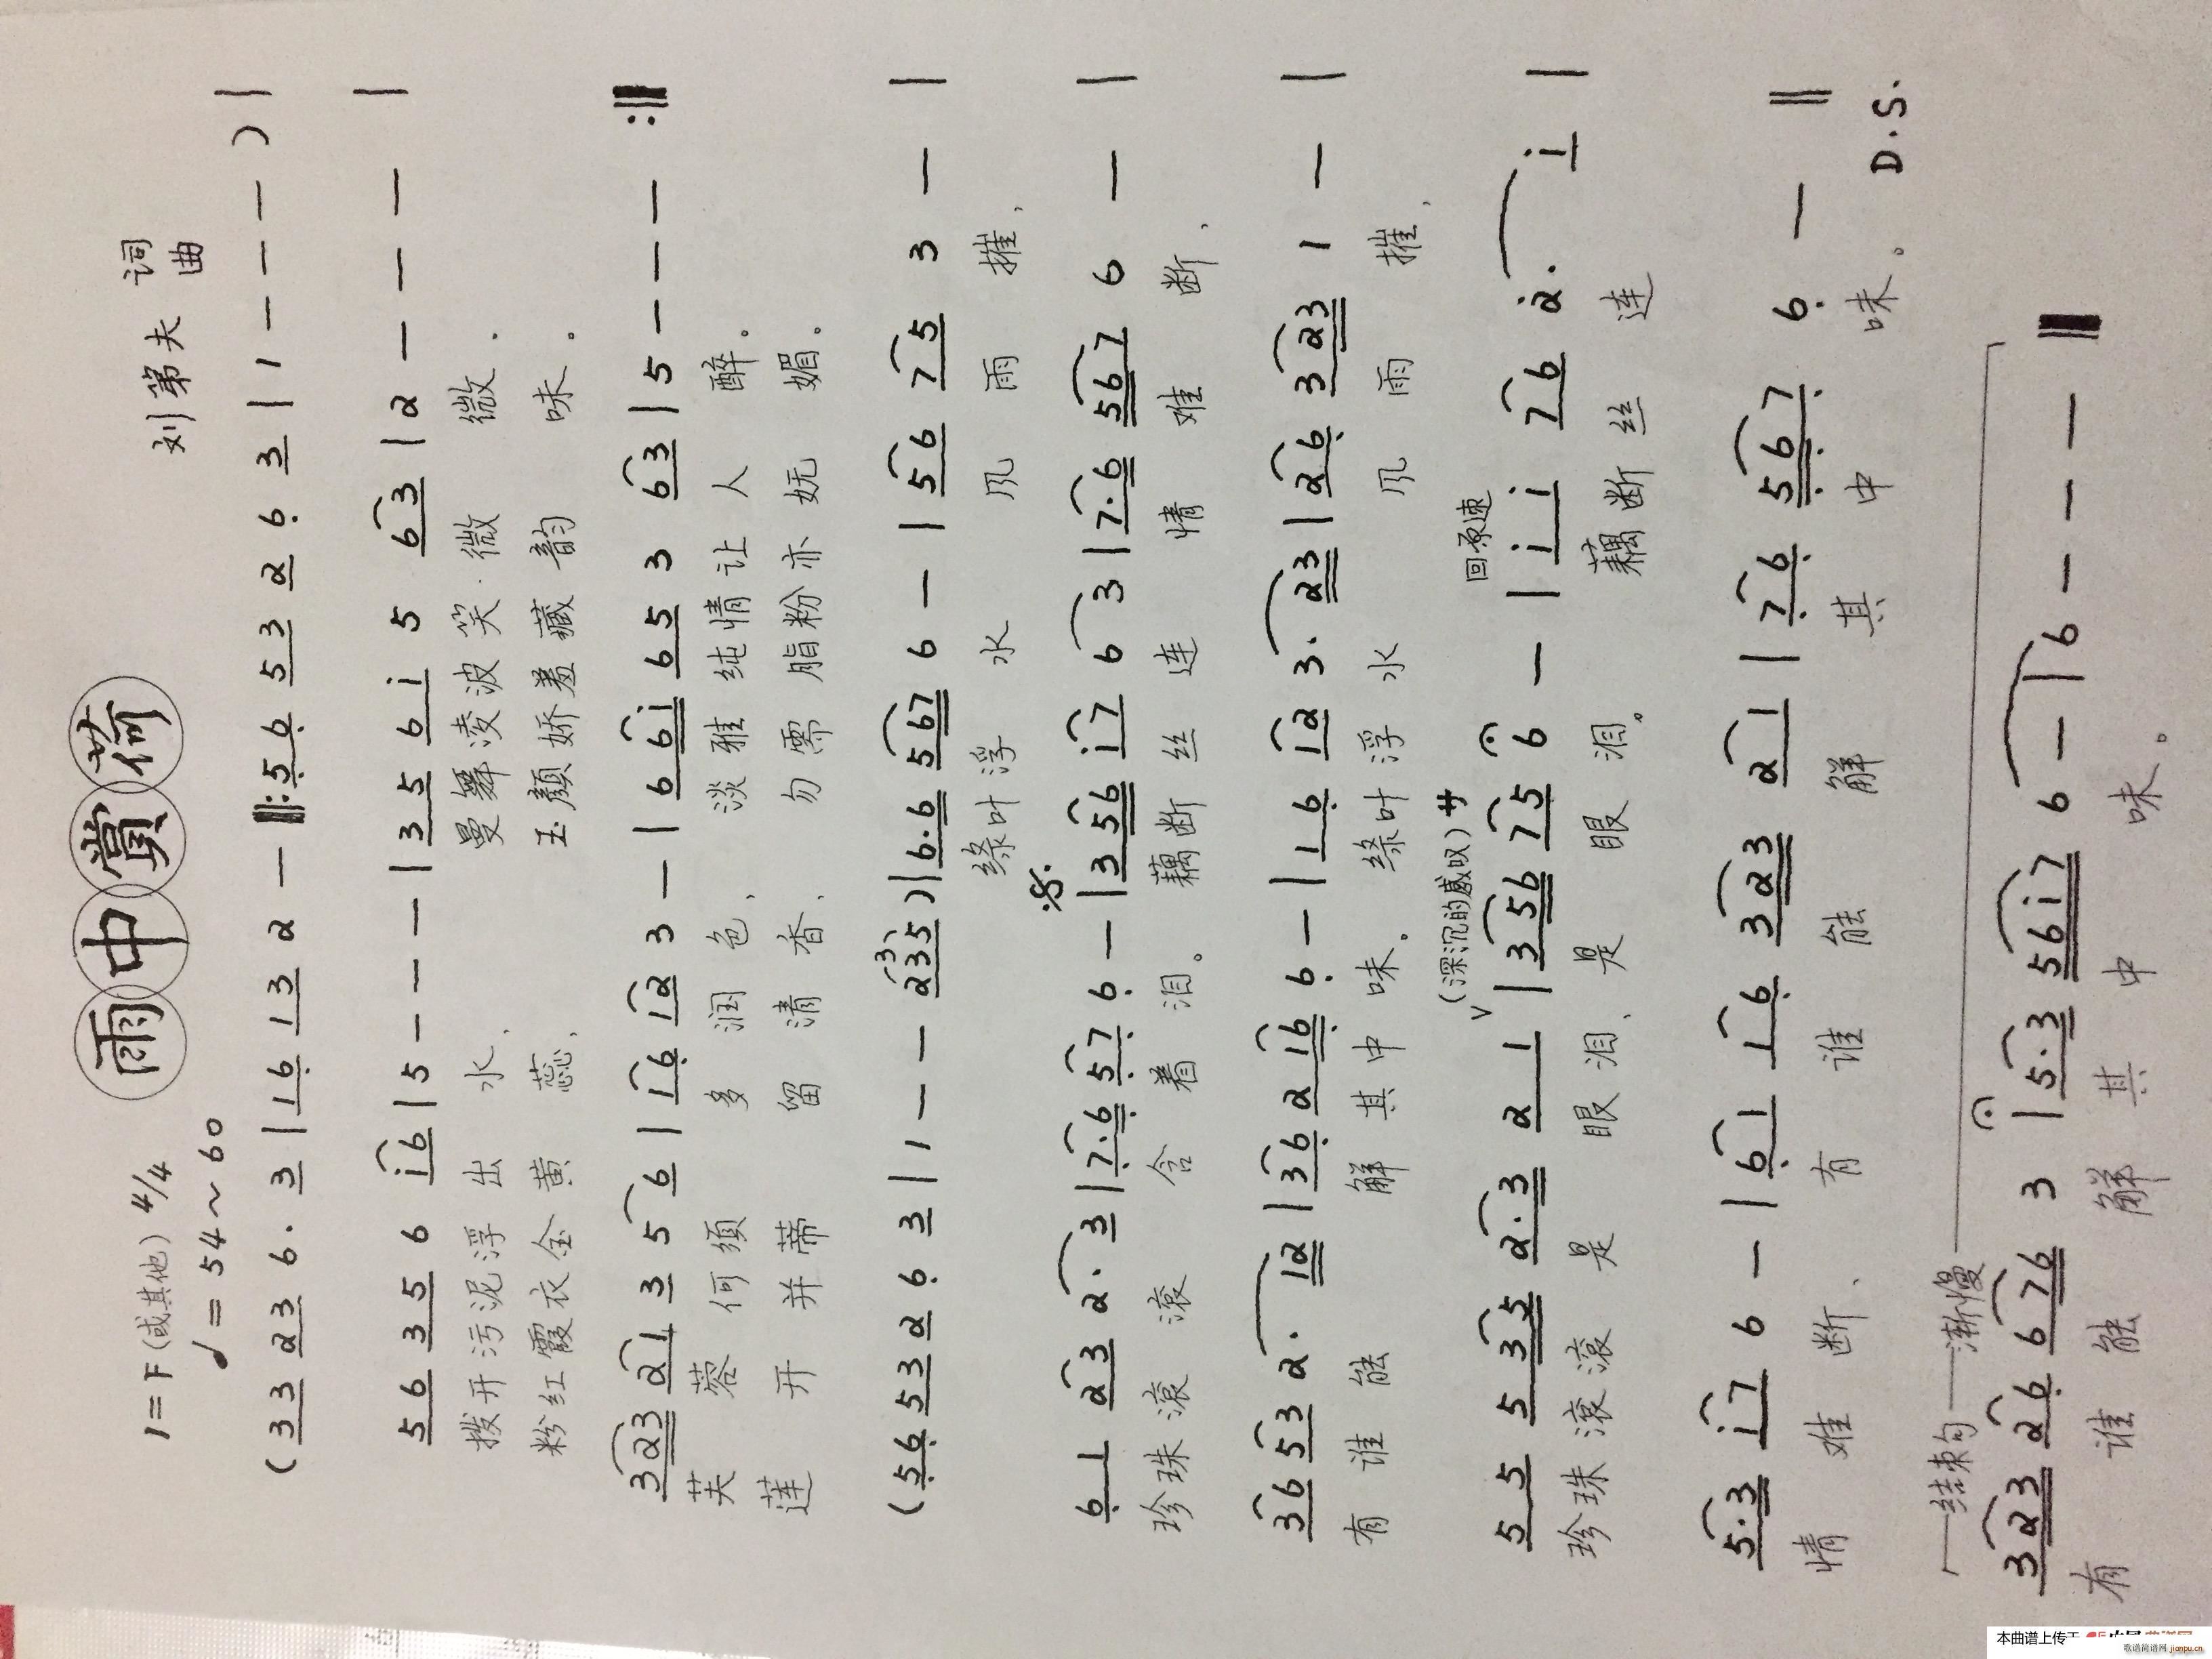 雨中赏荷
1=F(或其他) 4/4
♩=54~60
刘第夫 词曲
(3 3 2 3 6· 3 | 1 6̣ 1 3 2 — ‖: 5̣ 6̣ 5 3 2 6̣ 3 | 1 — — — ) |
5 6 3 5 6 i 6 | 5 — — — | 3 5 6 i 5 6 3 | 2 — — — |
拨开污泥浮出水、曼舞凌波笑·微微.
粉红霞衣金黄蕊、玉颜娇羞藏韵味.
3 2 3 2 1 3 5 6 | 1 6̣ 1 2 3 — | 6 6 i 6 5 3 6 3 | 5 — — — :‖
芙蓉何须多润色、淡雅纯情让人醉。
莲开并蒂留清香、勿需脂粉亦妩媚.
(5̣ 6̣ 5 3 2 6̣ 3 | 1 — — 2 3 5 3) | 6·6 5 6 7 6 — | 5 6 7 5 3 — |
绿叶浮水风雨摧、
6̣ 1 2 3 2· 3 | 7̣·6̣ 5̣ 7̣ 6̣ — | 3 5 6 i 7 6 3 | 7·6 5 6 7 6 — |
珍珠滚滚含着泪。藕断丝连情难断、
3 6 5 3 2· 1 2 | 3 6̣ 2 1 6̣ 6̣ — | 1 6̣ 1 2 3· 2 3 | 2 6̣ 3 2 3 1 — |
有谁能解其中味.绿叶浮水风雨摧、
(深沉的感叹) サ
回原速
5 5 5 3 5 2·3 2 1 | 3 5 6 7 5 6 — | i i i 7 6 2· i |
珍珠滚滚是眼泪、是眼泪。藕断丝连
5·3 i 7 6 — | 6̣ 1 1 6̣ 3 2 3 2 1 | 7̣ 6̣ 5̣ 6̣ 7̣ 6̣ — ‖
情难断、有谁能解其中味。
D.S.
结束句——渐慢
3 2 3 2 6̣ 6 7 6 3 | 5·3 5 6 i 7 6 — | 6 — — — ‖
有谁能解其中味。
本曲谱上传于
歌谱简谱网 jianpu.cn